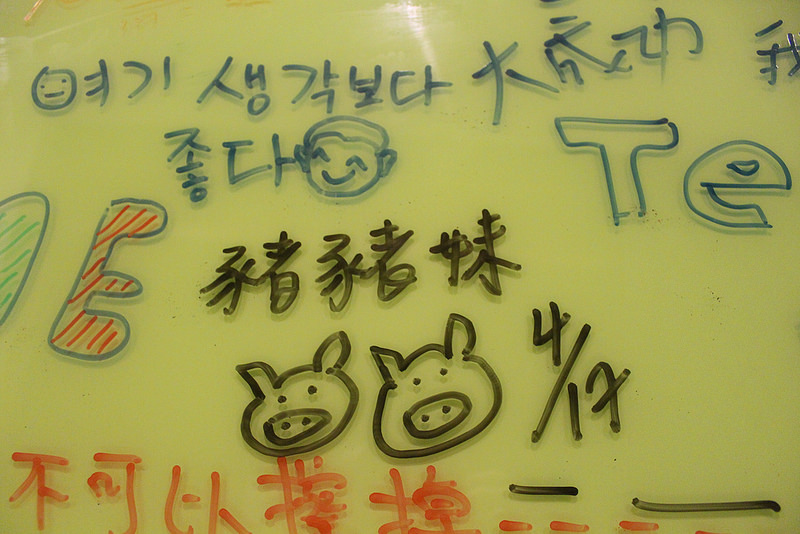 여기 생각보다 大成功 我
좋다
Te
E
豬豬妹
4/17
不可以擦掉